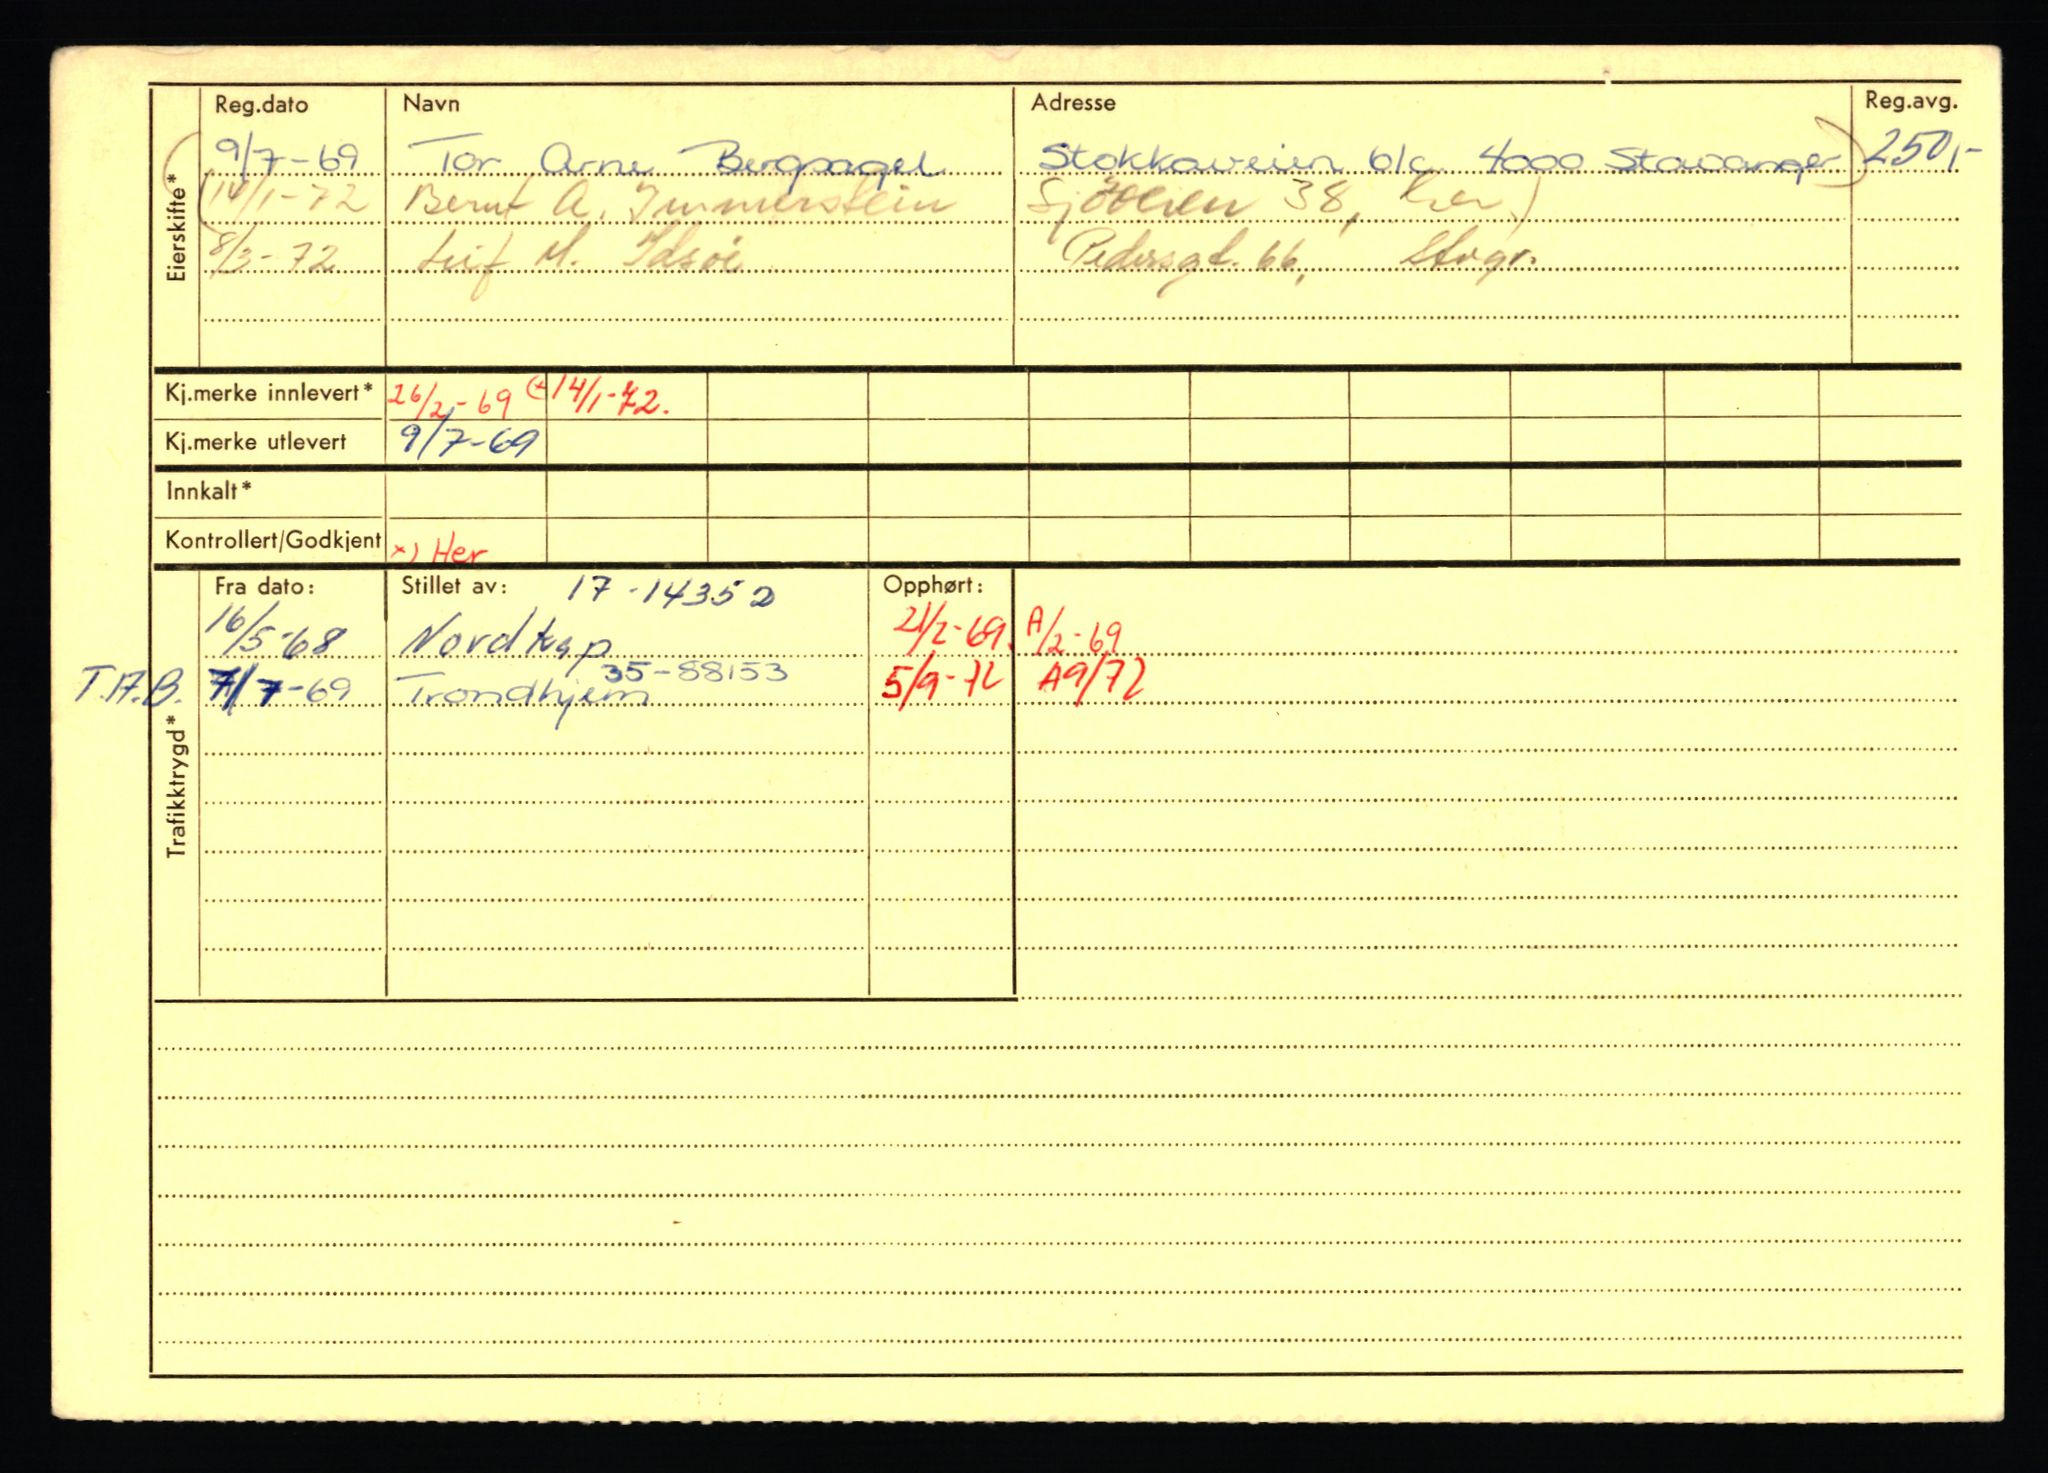 Reg.dato Navn Adresse Reg.avg.
Eierskifte*
9/7-69 Tor Arne Bergsagel Stokkaveien 61c 4000 Stavanger 250,-
(14/1-72 Bernt A. Immerstein Sjöveien 38, her)
8/3-72 Leif M. Idsöe Pedersgt. 66, Stvgr.
Kj.merke innlevert* 26/2-69 (* 14/1-72.
Kj.merke utlevert 9/7-69
Innkalt*
Kontrollert/Godkjent *) Her
Trafikktrygd*
Fra dato: Stillet av: 17-14352 Opphørt:
16/5-68 Nordkap 21/2-69. A/2-69
T.A.B. 7/7-69 Trondhjem 35-88153 5/9-72 A9/72